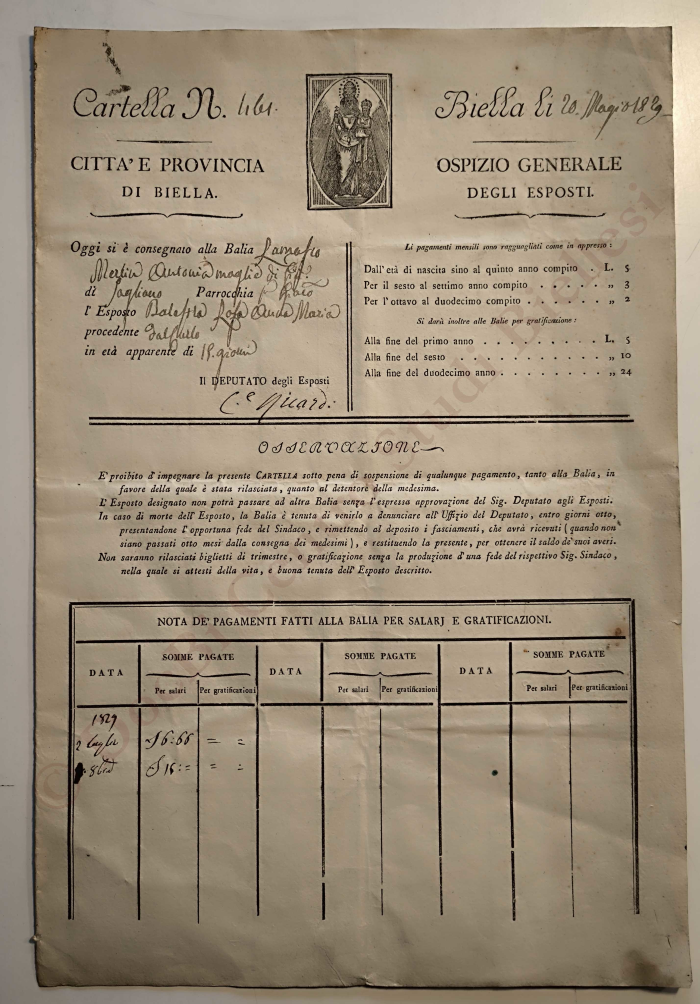 Cartella N.
Biella li 20. Magio 1829
CITTA' E PROVINCIA
DI BIELLA.
OSPIZIO GENERALE
DEGLI ESPOSTI.
Oggi si è consegnato alla Balia
Antonia moglie di
di Pagliano Parrocchia
l' Esposto Rosa Anna Maria
procedente
in età apparente di 15. giorni
Il DEPUTATO degli Esposti
Ricardi
Li pagamenti mensili sono ragguagliati come in appresso :
Dall'età di nascita sino al quinto anno compito . L. 5
Per il sesto al settimo anno compito . . . . . „ 3
Per l'ottavo al duodecimo compito . . . . . . „ 2
Si darà inoltre alle Balie per gratificazione :
Alla fine del primo anno . . . . . . . . . L. 5
Alla fine del sesto . . . . . . . . . . . „ 10
Alla fine del duodecimo anno . . . . . . . . „ 24
OSSERVAZIONE
E' proibito d'impegnare la presente CARTELLA sotto pena di sospensione di qualunque pagamento, tanto alla Balia, in
favore della quale è stata rilasciata, quanto al detentore della medesima.
L'Esposto designato non potrà passare ad altra Balia senza l'espressa approvazione del Sig. Deputato agli Esposti.
In caso di morte dell'Esposto, la Balia è tenuta di venirlo a denunciare all'Uffizio del Deputato, entro giorni otto,
presentandone l'opportuna fede del Sindaco, e rimettendo al deposito i fasciamenti, che avrà ricevuti (quando non
siano passati otto mesi dalla consegna dei medesimi), e restituendo la presente, per ottenere il saldo de' suoi averi.
Non saranno rilasciati biglietti di trimestre, o gratificazione senza la produzione d'una fede del rispettivo Sig. Sindaco,
nella quale si attesti della vita, e buona tenuta dell' Esposto descritto.
NOTA DE' PAGAMENTI FATTI ALLA BALIA PER SALARJ E GRATIFICAZIONI.
DATA SOMME PAGATE DATA SOMME PAGATE DATA SOMME PAGATE
Per salari Per gratificazioni Per salari Per gratificazioni Per salari Per gratificazioni
1829
2 luglio 6:66 = =
8bre 15:= = =